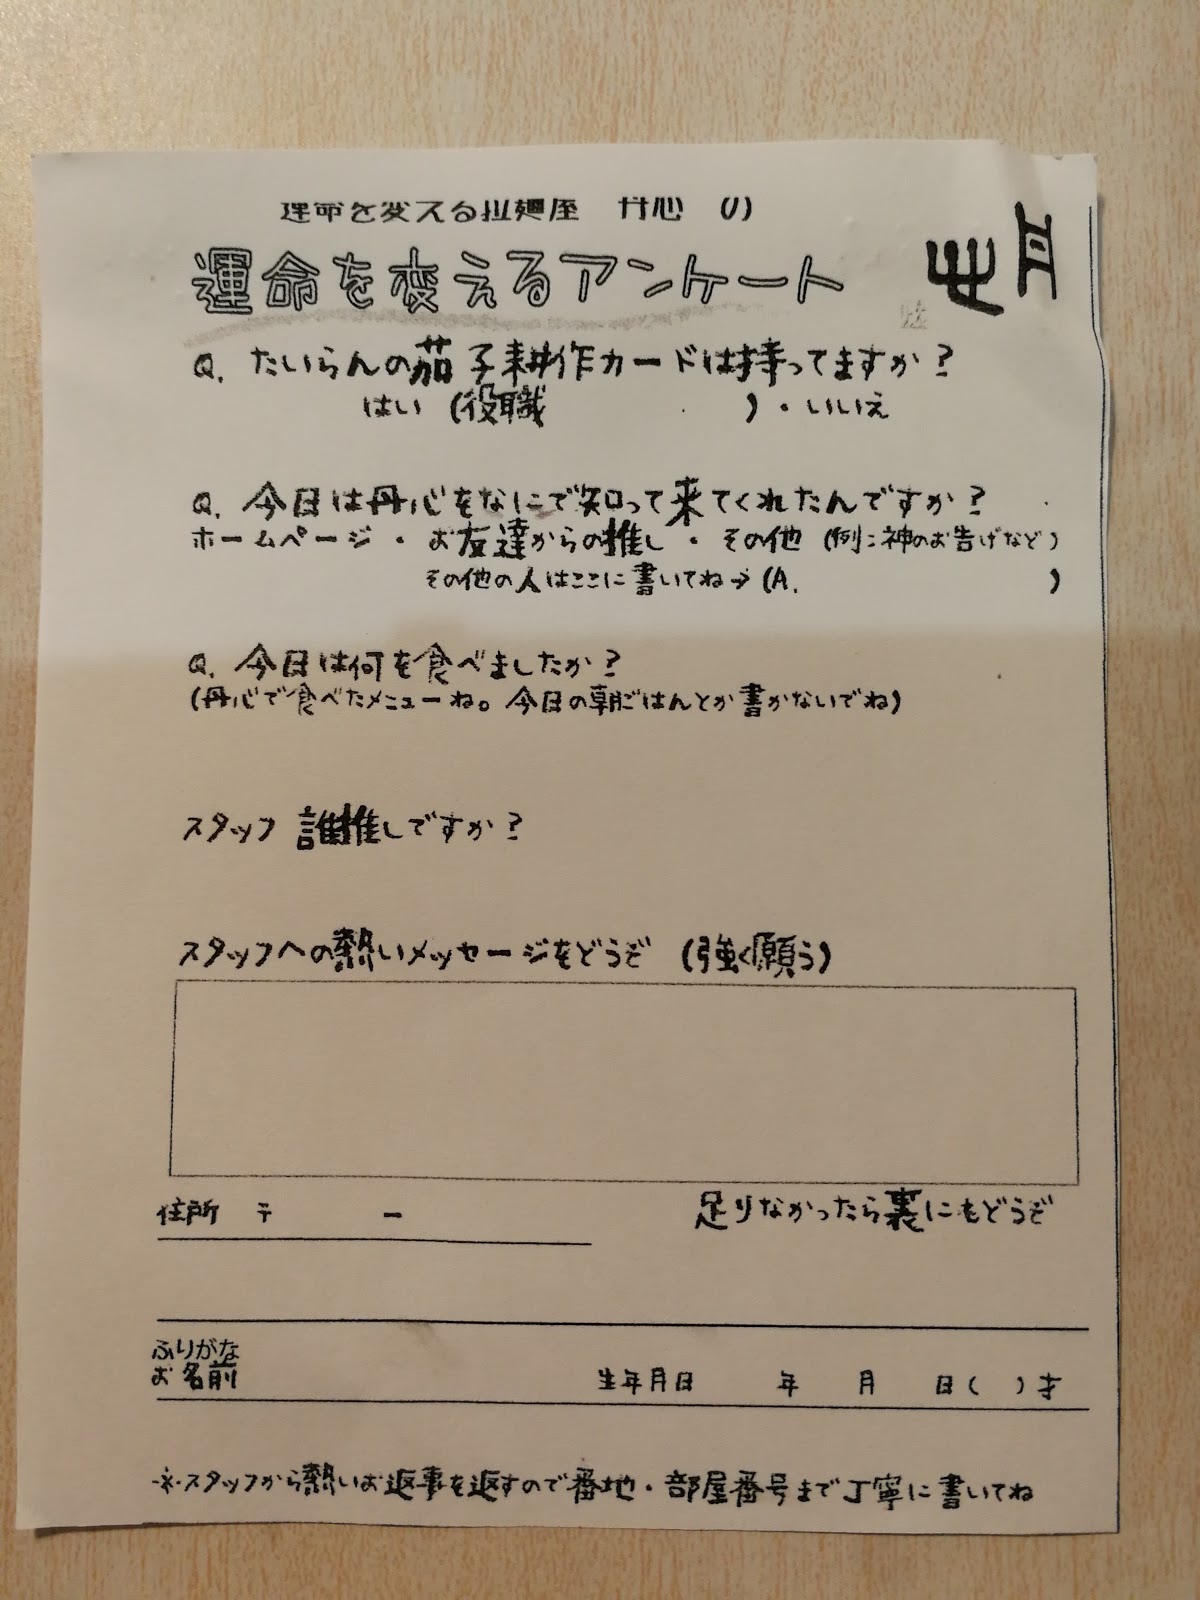 運命を変える拉麺屋 丹心 の
運命を変えるアンケート
Q. たいらんの茄子耕作カードは持ってますか？
はい (役職 )・いいえ
Q. 今日は丹心をなにで知って来てくれたんですか？
ホームページ・お友達からの推し・その他 (例：神のお告げなど)
その他の人はここに書いてね→(A. )
Q. 今日は何を食べましたか？
(丹心で食べたメニューね。今日の朝ごはんとか書かないでね)
スタッフ 誰推しですか？
スタッフへの熱いメッセージをどうぞ (強く願う)
住所 〒 ー
足りなかったら裏にもどうぞ
ふりがな
お名前 生年月日 年 月 日( )才
※スタッフから熱いお返事を返すので番地・部屋番号まで丁寧に書いてね